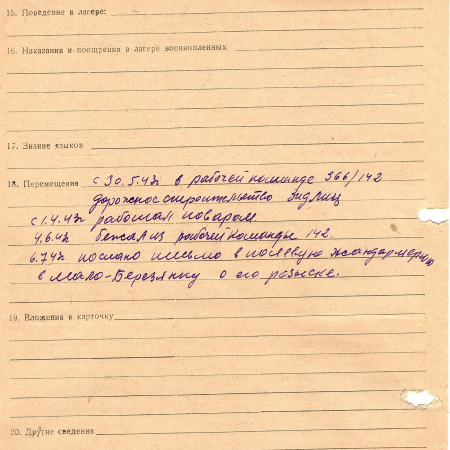 15. Поведение в лагере:
16. Наказания и поощрения в лагере военнопленных
17. Знание языков
18. Перемещения с 30.5.43г в рабочей команде 366/142
дорожное строительство
с 1.4.43г работал поваром
4.6.43г бежал из рабочей команды 142.
6.7.43г послано письмо в полевую жандармерию
в Мало-Березянку о его розыске.
19. Вложения в карточку
20. Другие сведения